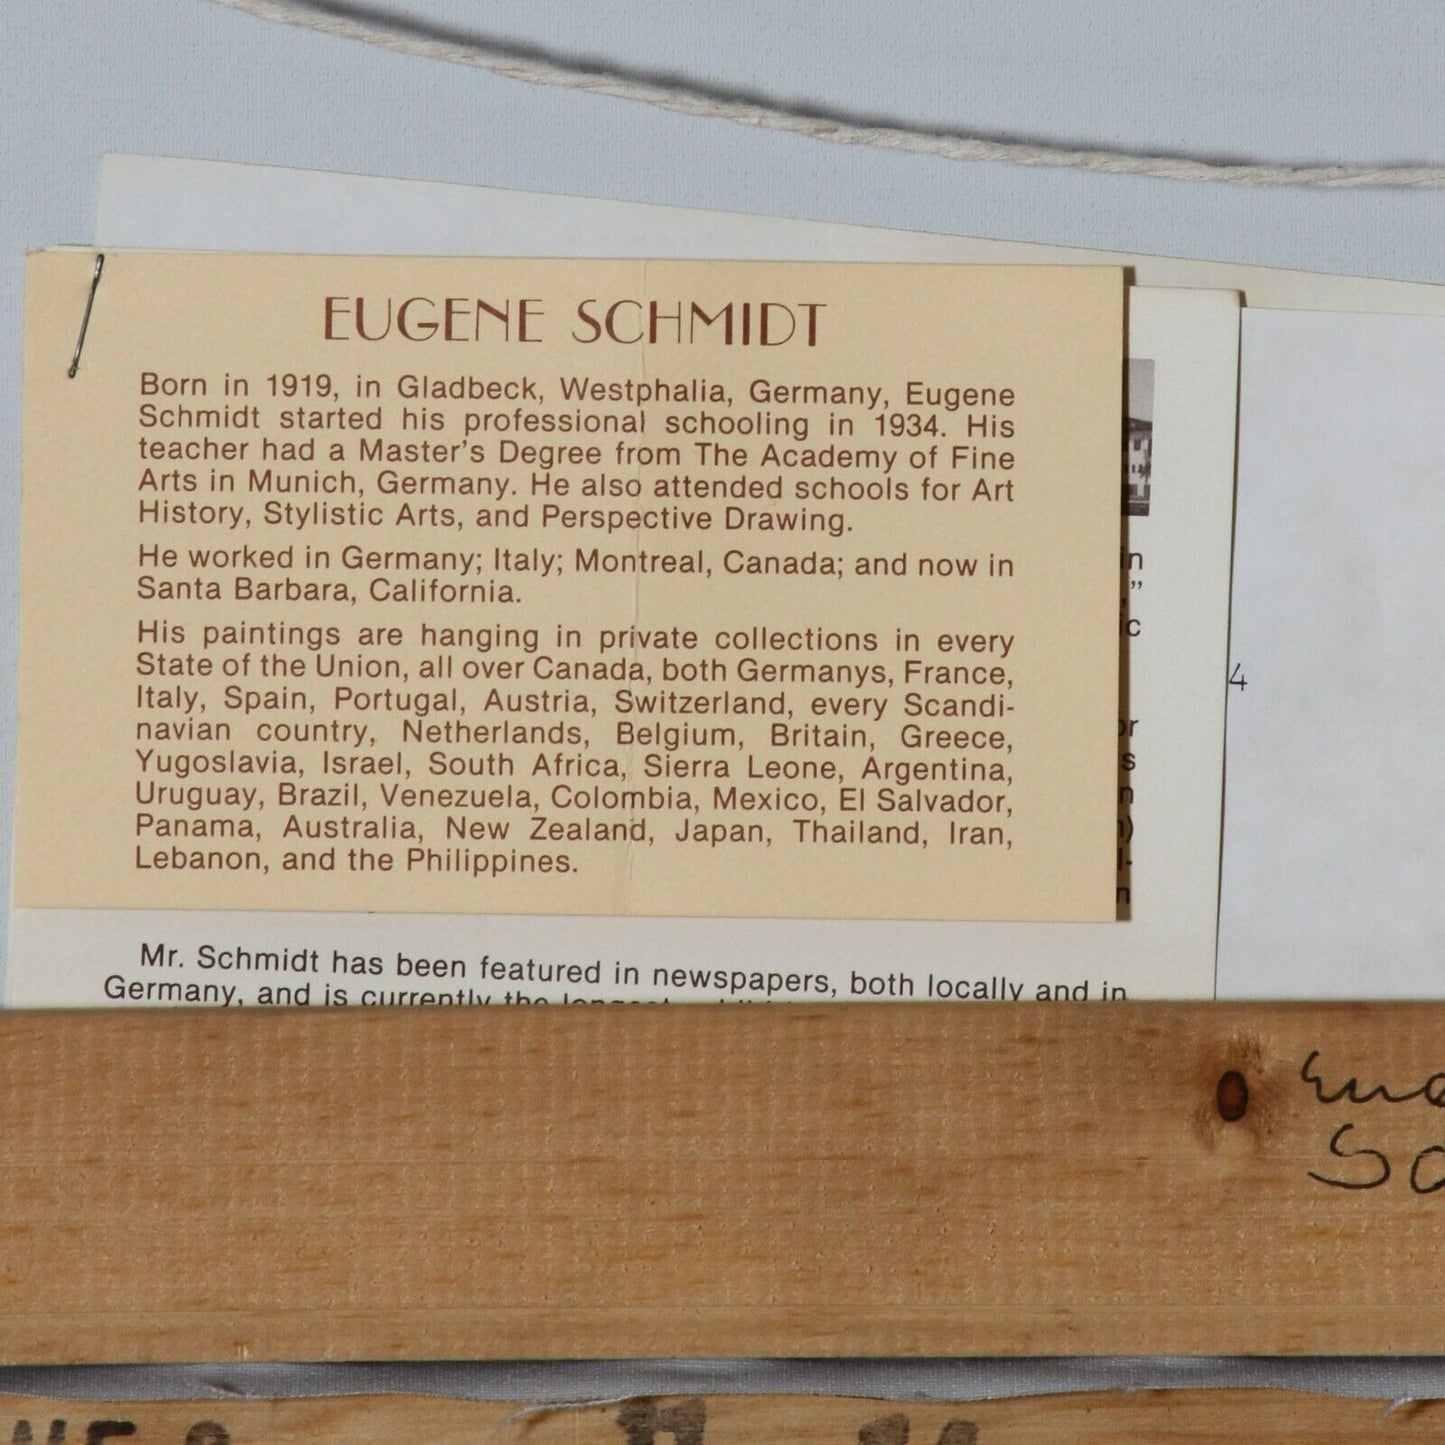 EUGENE SCHMIDT
Born in 1919, in Gladbeck, Westphalia, Germany, Eugene
Schmidt started his professional schooling in 1934. His
teacher had a Master's Degree from The Academy of Fine
Arts in Munich, Germany. He also attended schools for Art
History, Stylistic Arts, and Perspective Drawing.
He worked in Germany; Italy; Montreal, Canada; and now in
Santa Barbara, California.
His paintings are hanging in private collections in every
State of the Union, all over Canada, both Germanys, France,
Italy, Spain, Portugal, Austria, Switzerland, every Scandi-
navian country, Netherlands, Belgium, Britain, Greece,
Yugoslavia, Israel, South Africa, Sierra Leone, Argentina,
Uruguay, Brazil, Venezuela, Colombia, Mexico, El Salvador,
Panama, Australia, New Zealand, Japan, Thailand, Iran,
Lebanon, and the Philippines.
4
Mr. Schmidt has been featured in newspapers, both locally and in
Germany, and is currently the longest